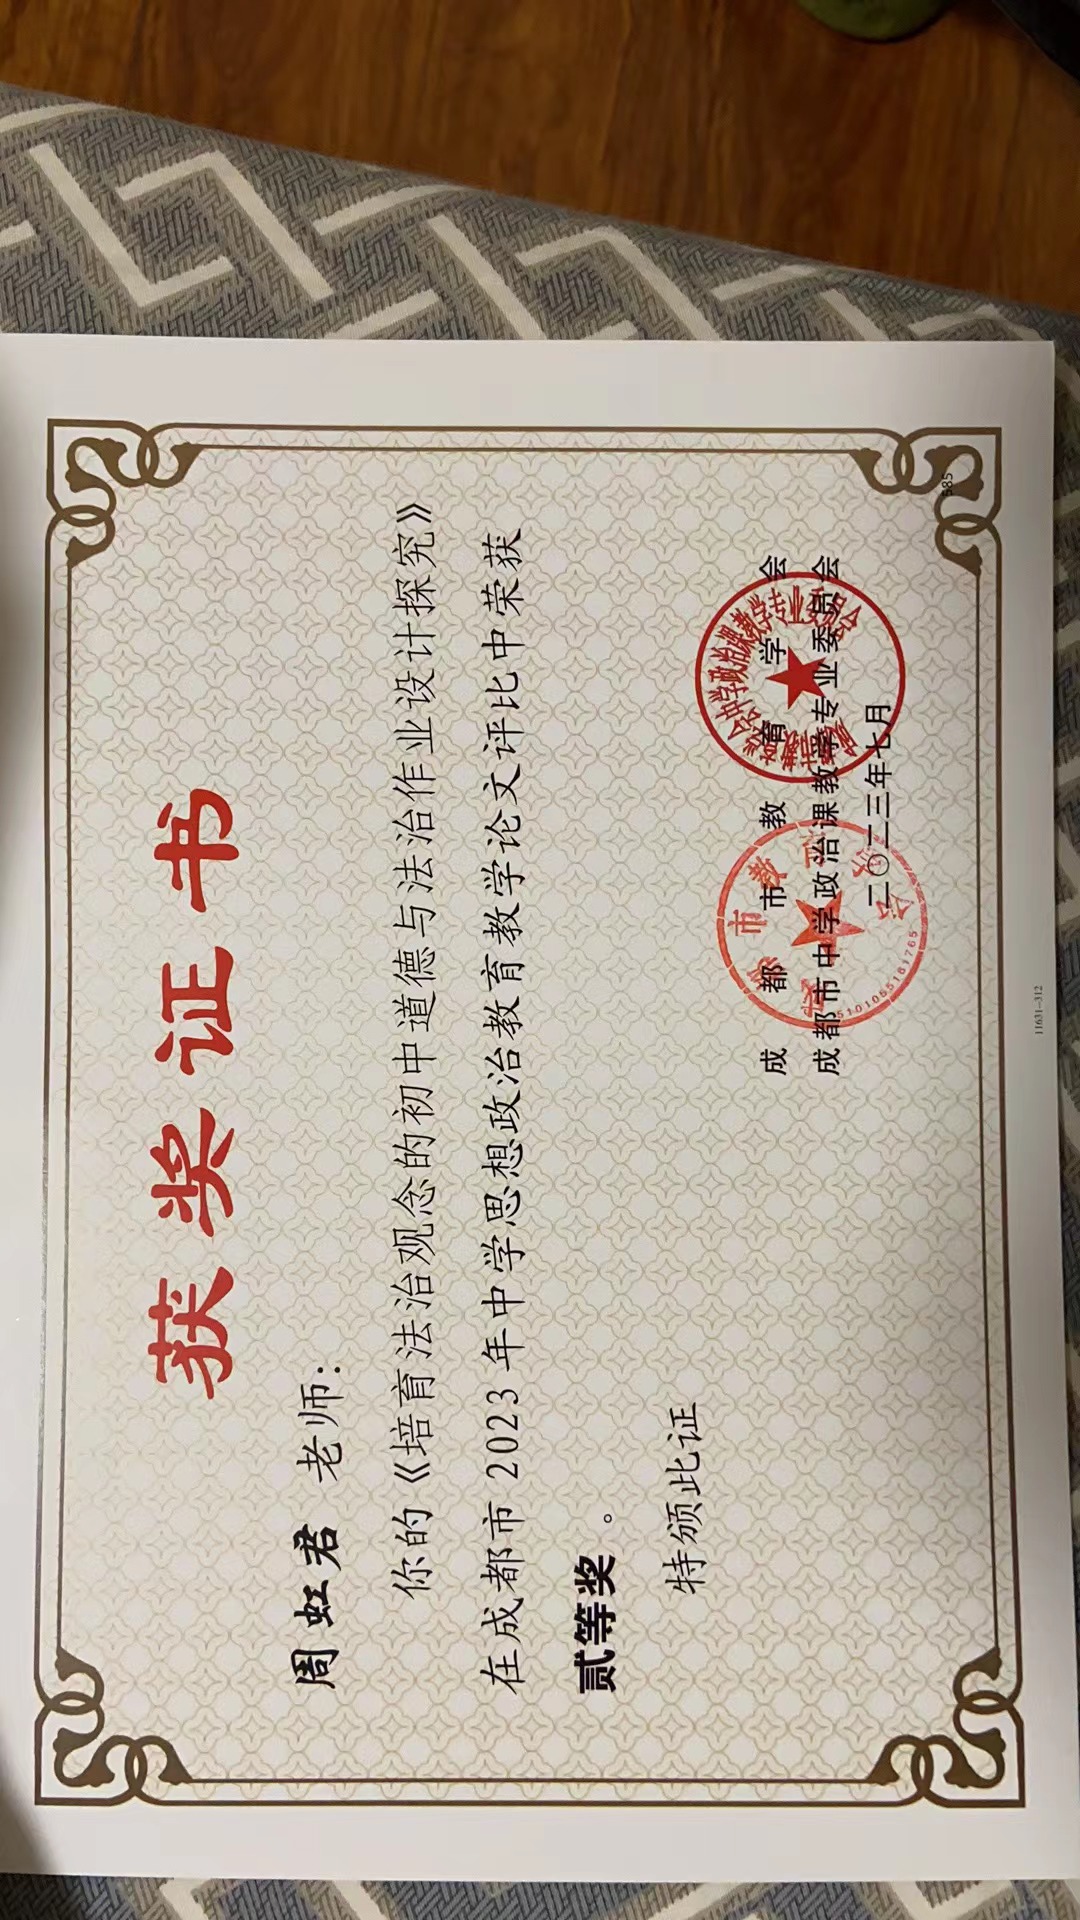 获奖证书
周虹君 老师：
你的《培育法治观念的初中道德与法治作业设计探究》
在成都市 2023 年中学思想政治教育教学论文评比中荣获
贰等奖 。
特颁此证
成都市教育学会
成都市中学政治课教学专业委员会
二〇二三年七月
5101055181765
585
11631-312